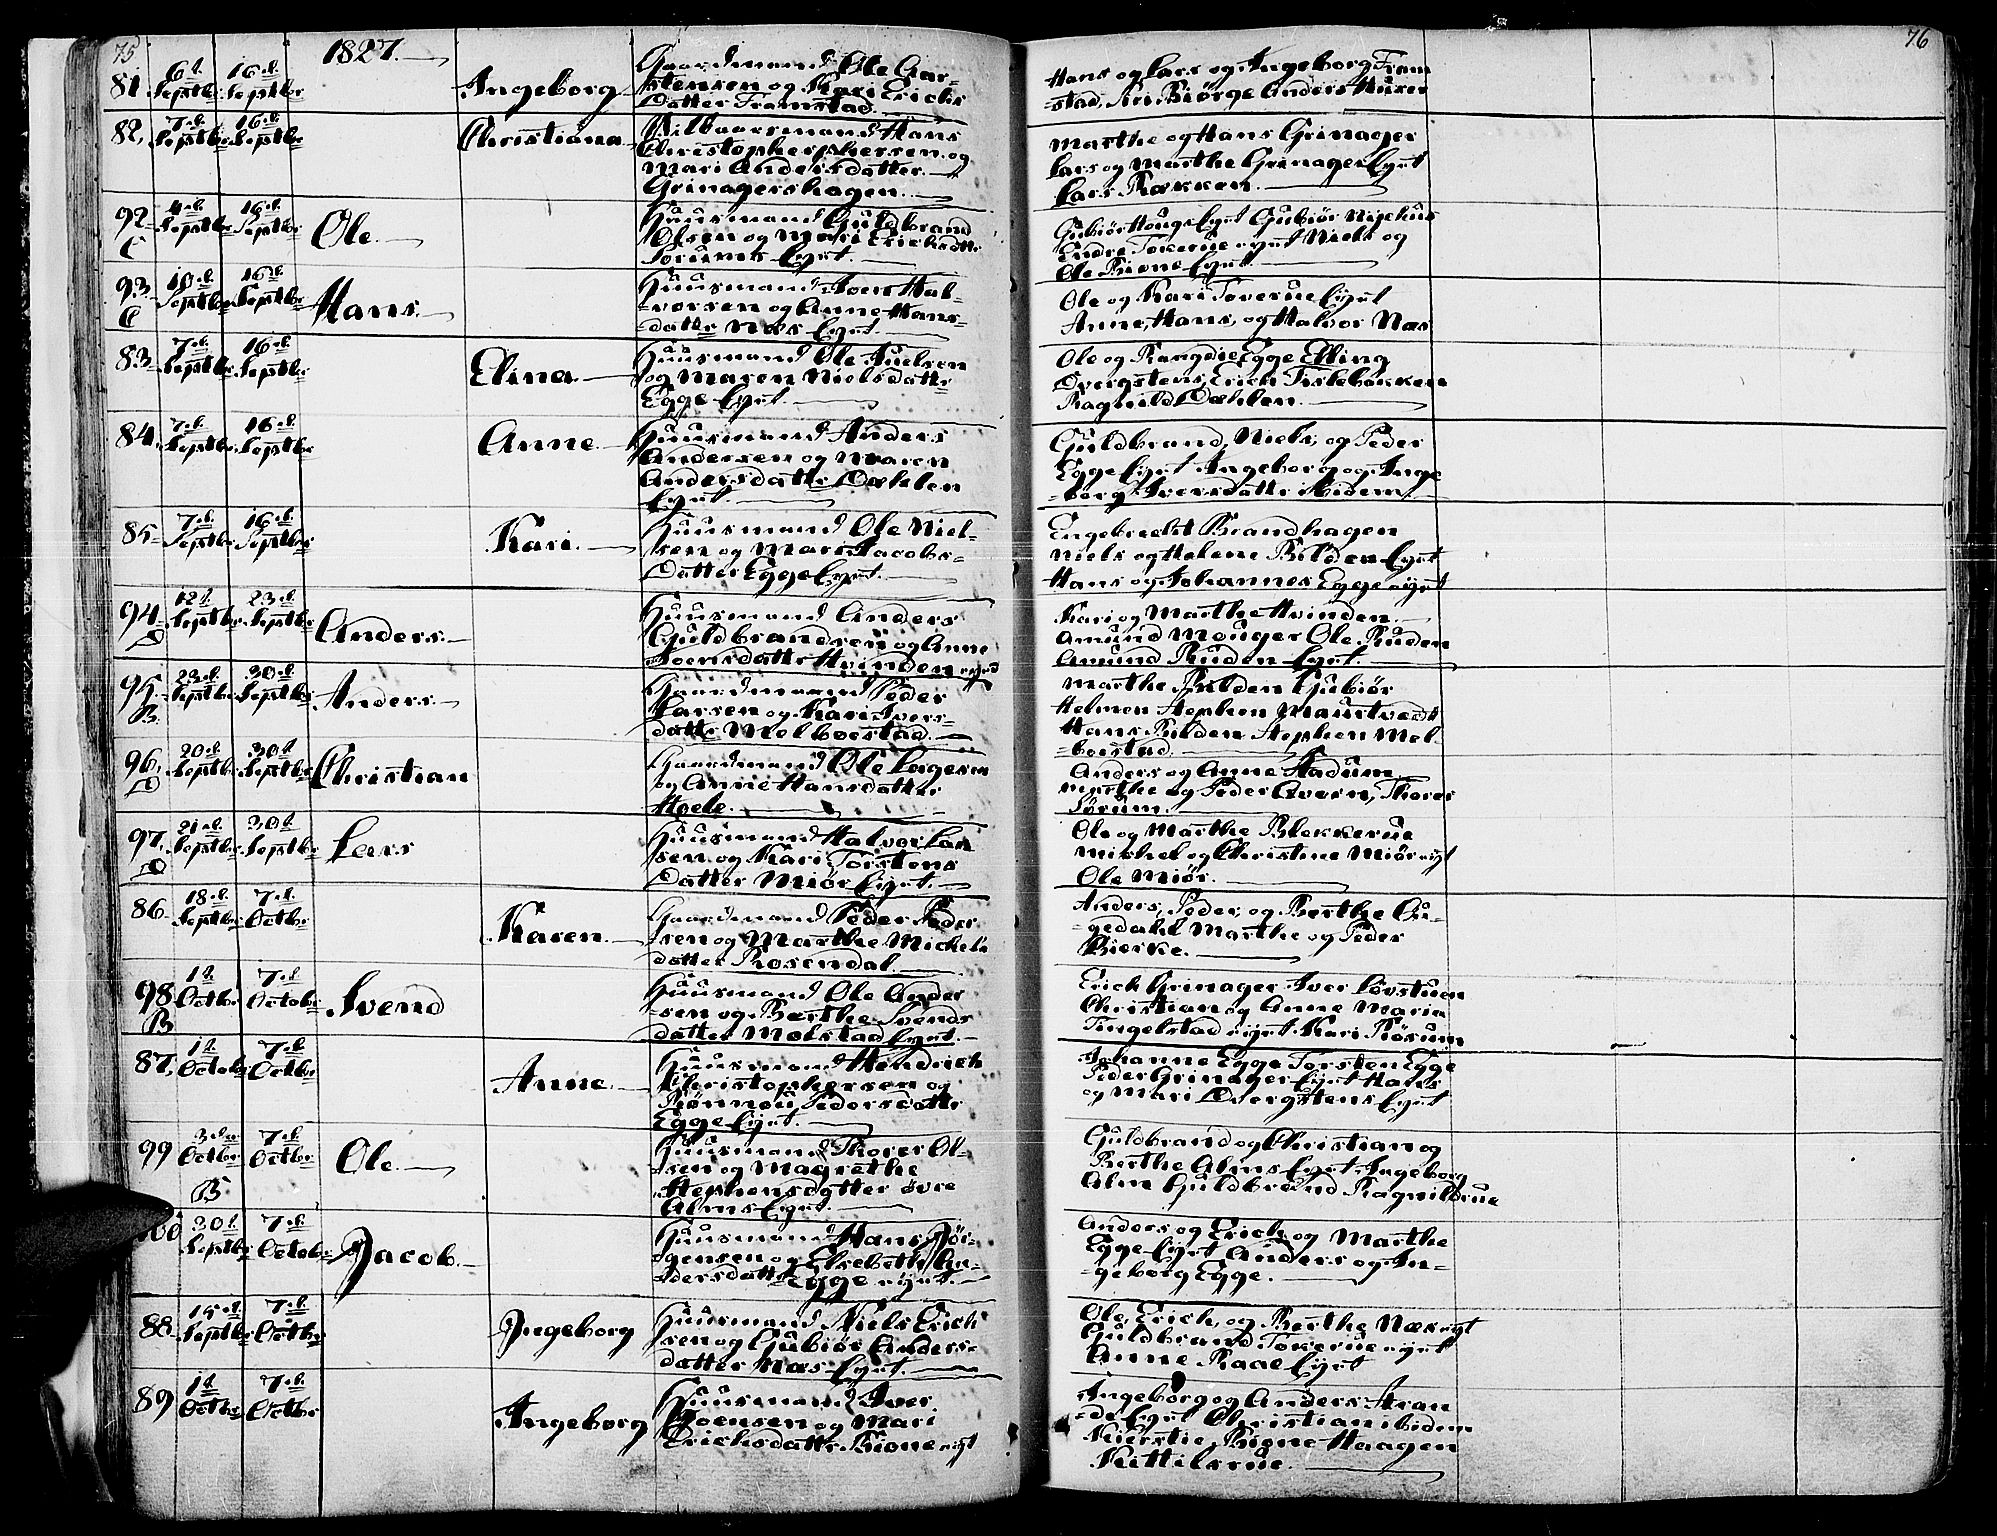 75
1827.
76
81 6 t. Septbr 16 d. Septbr Ingeborg Gaardmand Ole Gar-
stensen og Kari Erichs
Datter Framstad.
Hans og Lars og Ingeborg Fram
stad, Siri Biörge Anders
82, 7.d. Septbr 16.d. Septbr Christiana
Christophersen og
Mari Andersdatter
Grinagershagen.
Marthe og Hans Grinager
Lars og Marthe Grinager Eyet
Lars Røkken
92 C 4.d. Septbr 16.d. Septbr Ole Huusmand Guldbrand
Olsen og Mari Erichsdttr
Sorums Eyet.
Gubiör Houge Eyet Gubiör
Endre Tokerue eyet Niels og
Ole Eyet
93 C 10.d. Septbr 16.d. Septbr Hans Huusmand Iver Hal-
vorsen og Anne Hans-
dattr Næs Eyet.
Ole og Kari Toverue Eyet
Anne, Hans, og Halvor Næs
83 7.d. Septbr 16.d. Septbr Elina Huusmand Ole Juelsen
og Maren Nielsdattr
Egge Eyet.
Ole og Rangdie Egge Elling
Dvergstens, Erich Tislebakken
Ragnild Dæhlen
84. 7.d. Septbr 16.d. Septbr Anne Huusmand Anders
Andersen og Maren
Andersdattr Dæhlen
Eyet
Guldbrand, Niels, og Peder
Egge Eyet Ingeborg og Inge
borg Iversdattr ibidem
85 7.d. Septbr 16.d. Septbr Kari Huusmand Ole Niel-
sen og Mari Jacobs-
Datter Egge Eyet.
Engebredt Brandhagen
Niels og Helene Bilden Eyet
Hans og Johannes Egge eyet
94 D 12 t. Septbr 23.d. Septbr Anders Huusmand Anders
Guldbrandsen og Anne
Iversdattr Hvinden eyed
Kari og Marthe Hvinden
Amund Mouger Ole Ruden
Amund Ruden Eyet.
95 B. 23.d. Septbr 30.d. Septbr Anders Gaardmand Peder
Larsen og Kari Ivers-
dattr Melboestad.
Marthe Bilden Gubiör
Helmen Stephen
Hans Bilden Stephen Mel-
boestad.
96. D 20.d. Septbr 30.d. Septbr Christian Gaardmand Ole Lagesen
og Anne Hansdatter
Hoele.
Anders og Anne Hadum,
Marthe og Peder Thorer
Sörum
97. D 21.d. Septbr 30.d. Septbr Lars Huusmand Halvor Lar
sen og Kari Torstens
Datter Miör Eyet.
Ole og Marthe Blekkerue
Michel og Christine Miör eyt
Ole Miör.
86 18.d. Septbr 7.d. Octbr Karen Gaardmand Peder Peder
sen og Marthe Michels
datter Rosendal.
Anders, Peder, og Berthe Ou-
gedahl Marthe og Peder
Bierke.
98 B 1 t. Octbr 7.d. Octobr Svend Huusmand Ole Ander
sen og Berthe Svends
datter Molstad Eyet.
Erich Grinager Iver Lövstuen
Christian og Anne Maria
Tingelstad eyet Kari Rösum
87, 1 t. Octobr 7.d. Octbr Anne Huusmand Hendrich
Christophersen og
Rönnou Pedersdattr
Egge Eyet.
Johanne Egge Torsten Egge
Peder Grinager Eyet Hans
og Mari Dvergstens Eyet
99 B 3 die Octbr 7.d. Octbr Ole Huusmand Thorer Ol-
sen og Magrethe
Stephensdatter övre
Alms Eyet.
Guldbrand og Christian og
Berthe Alms Eyet, Ingeborg
Alm Guldbrand Ragnildrue
100 30 t. Septbr 7.d. Octobr Jacob Huusmand Hans Jör-
gensen og Elsebeth An-
dersdattr Egge eyet.
Anders og Erich og Marthe
Egge Eyet Anders og In-
geborg Egge.
88 15.d. Septbr 7.d. Octbr Ingeborg Huusmand Niels Erich
sen og Gubiör Anders-
datter Næs Eyet.
Ole, Erich, og Berthe Næs eyt
Guldbrand Tokerue eyet
Anne Raae Eyet
89 1 t. Octbr 7.d. Octbr Ingeborg Huusmand Iver
Joensen og Mari
Erichsdattr Bione eyt
Ingeborg og Anders Stran
de Eyet Christian ibidem
Kierstie Bione Haagen
Kittilsrue.